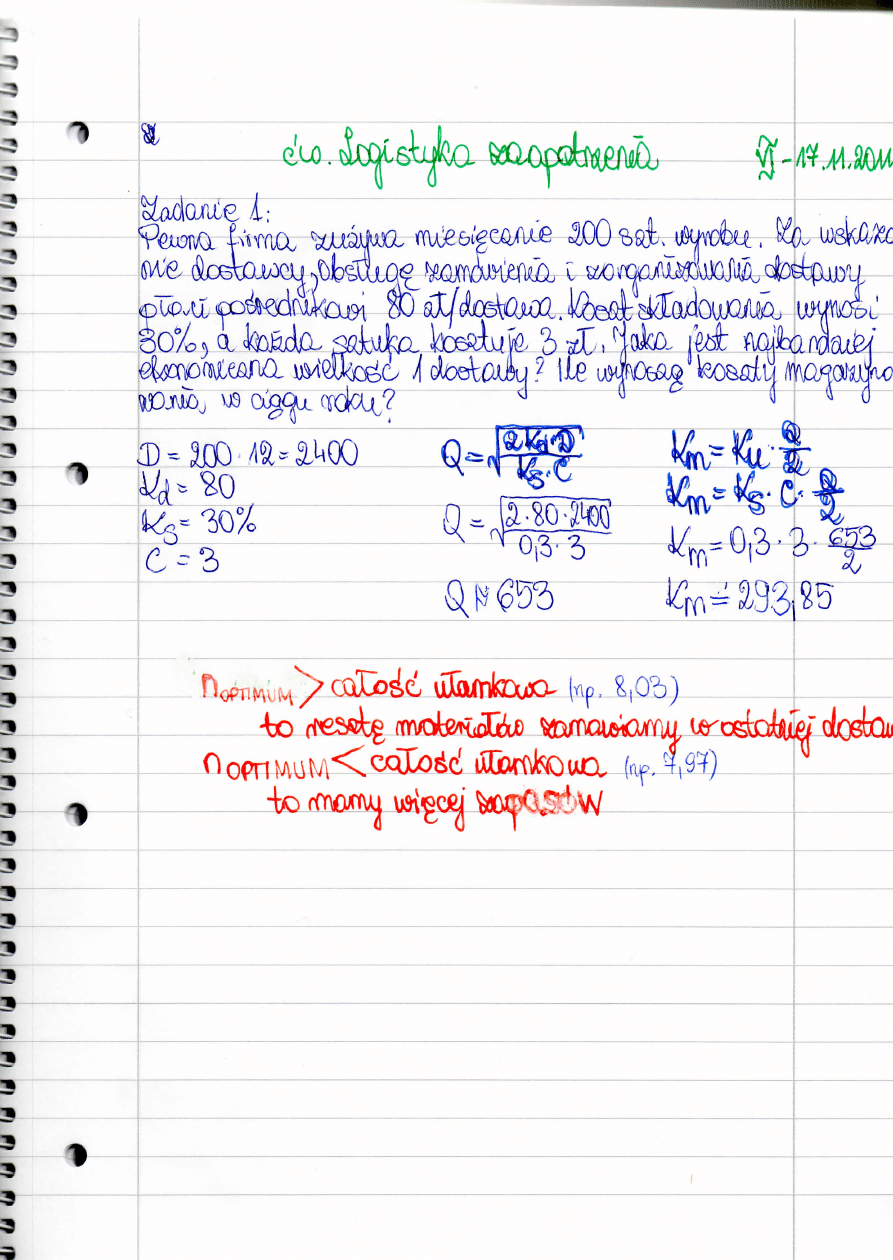 ćw. Logistyka zaopatrzenia VI - 17.11.2011
Zadanie 1:
Pewna firma zużywa miesięcznie 200 szt. wyrobu. Za wskaza
nie dostawcy, obsługę zamówienia i zorganizowania dostawy
płaci pośrednikowi 80 zł/dostawa. Koszt składowania wynosi
30%, a każda sztuka kosztuje 3 zł. Jaka jest najbardziej
ekonomiczna wielkość 1 dostawy? Ile wynoszą koszty magazyno
wania, w ciągu roku?
D = 200 · 12 = 2400
Kd = 80
Ks = 30%
C = 3
Q = √(2Kd·D / Ks·C)
Q = √(2·80·2400 / 0,3·3)
Q ≈ 653
Km = Ku · Q/2
Km = Ks · C · Q/2
Km = 0,3 · 3 · 653/2
Km = 293,85
nOPTIMUM > całość ułamkowa (np. 8,03)
to resztę materiałów zamawiamy w ostatniej dostaw
nOPTIMUM < całość ułamkowa (np. 7,97)
to mamy więcej zapasów